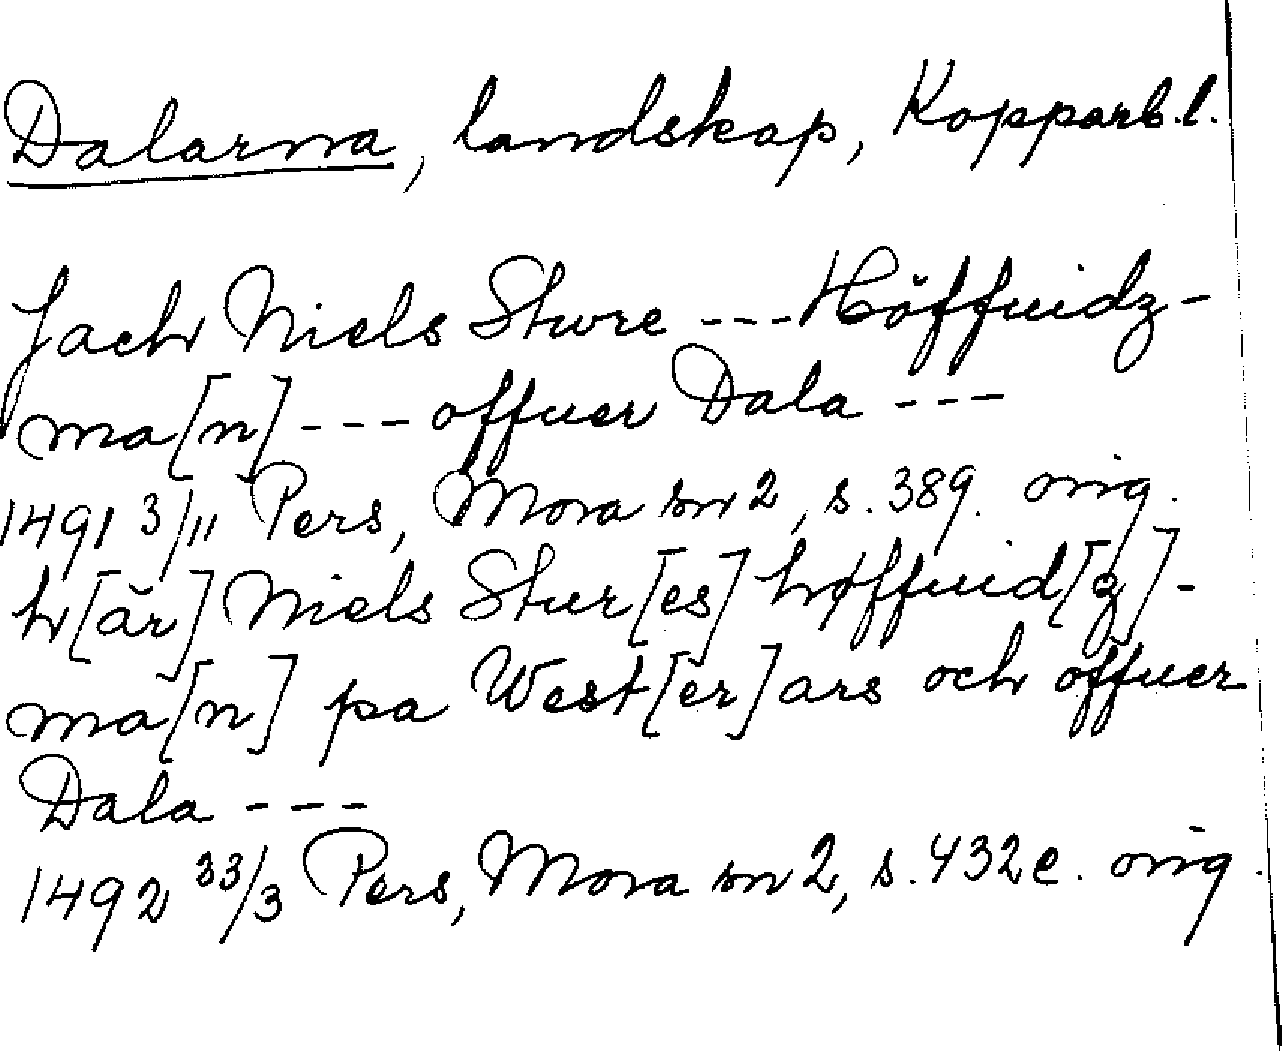 Dalarna, landskap, Kopparb.l.
Jach Niels Sture --- Höffuidz-
ma[n] --- offuer Dala ---
1491 3/11 Pers, Mora sn 2, s. 389. orig.
h[är] Niels Stur[es] høffuid[z]-
ma[n] pa West[er]ars och offuer
Dala ---
1492 23/3 Pers, Mora sn 2, s. 432 e. orig.